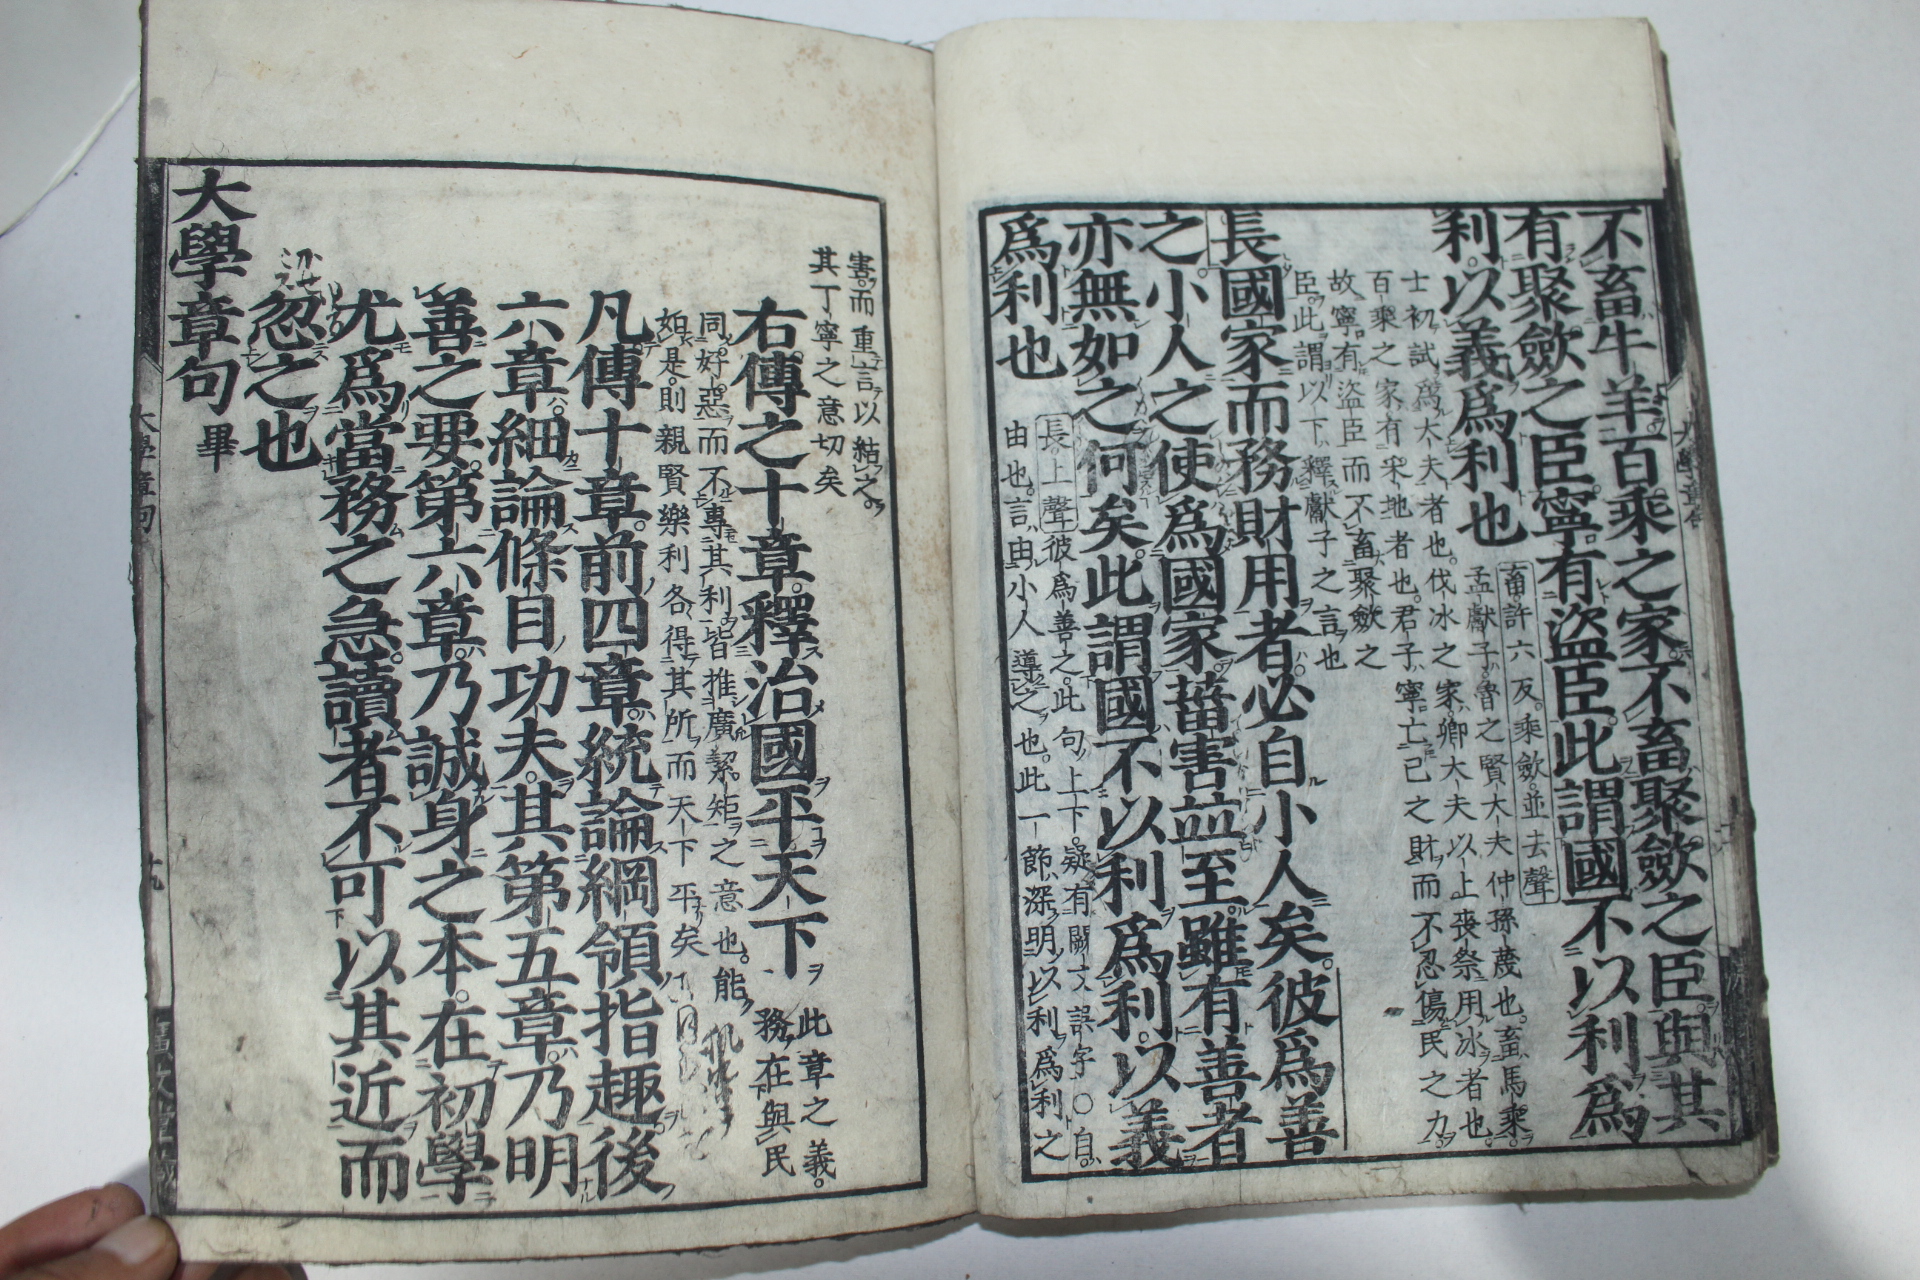 不畜牛羊百乘之家不畜聚斂之臣與其
有聚斂之臣寧有盜臣此謂國不以利爲
利以義爲利也
畜許六反乘斂並去聲
孟獻子魯之賢大夫仲孫蔑也畜馬乘
士初試爲大夫者也伐冰之家卿大夫以上喪祭用冰者也
百乘之家有采地者也君子寧亡己之財而不忍傷民之力
故寧有盜臣而不畜聚斂之
臣此謂以下釋獻子之言也
長國家而務財用者必自小人矣彼爲善
之小人之使爲國家菑害並至雖有善者
亦無如之何矣此謂國不以利爲利以義
爲利也
長上聲彼爲善之此句上下疑有闕文誤字○自
由也言由小人導之也此一節深明以利爲利之
害而重言以結之
其丁寧之意切矣
右傳之十章釋治國平天下
此章之義
務在與民
同好惡而不專其利皆推廣絜矩之意也能
如是則親賢樂利各得其所而天下平矣
凡傳十章前四章統論綱領指趣後
六章細論條目功夫其第五章乃明
善之要第六章乃誠身之本在初學
尤爲當務之急讀者不可以其近而
忽之也
大學章句畢
大學章句
十九